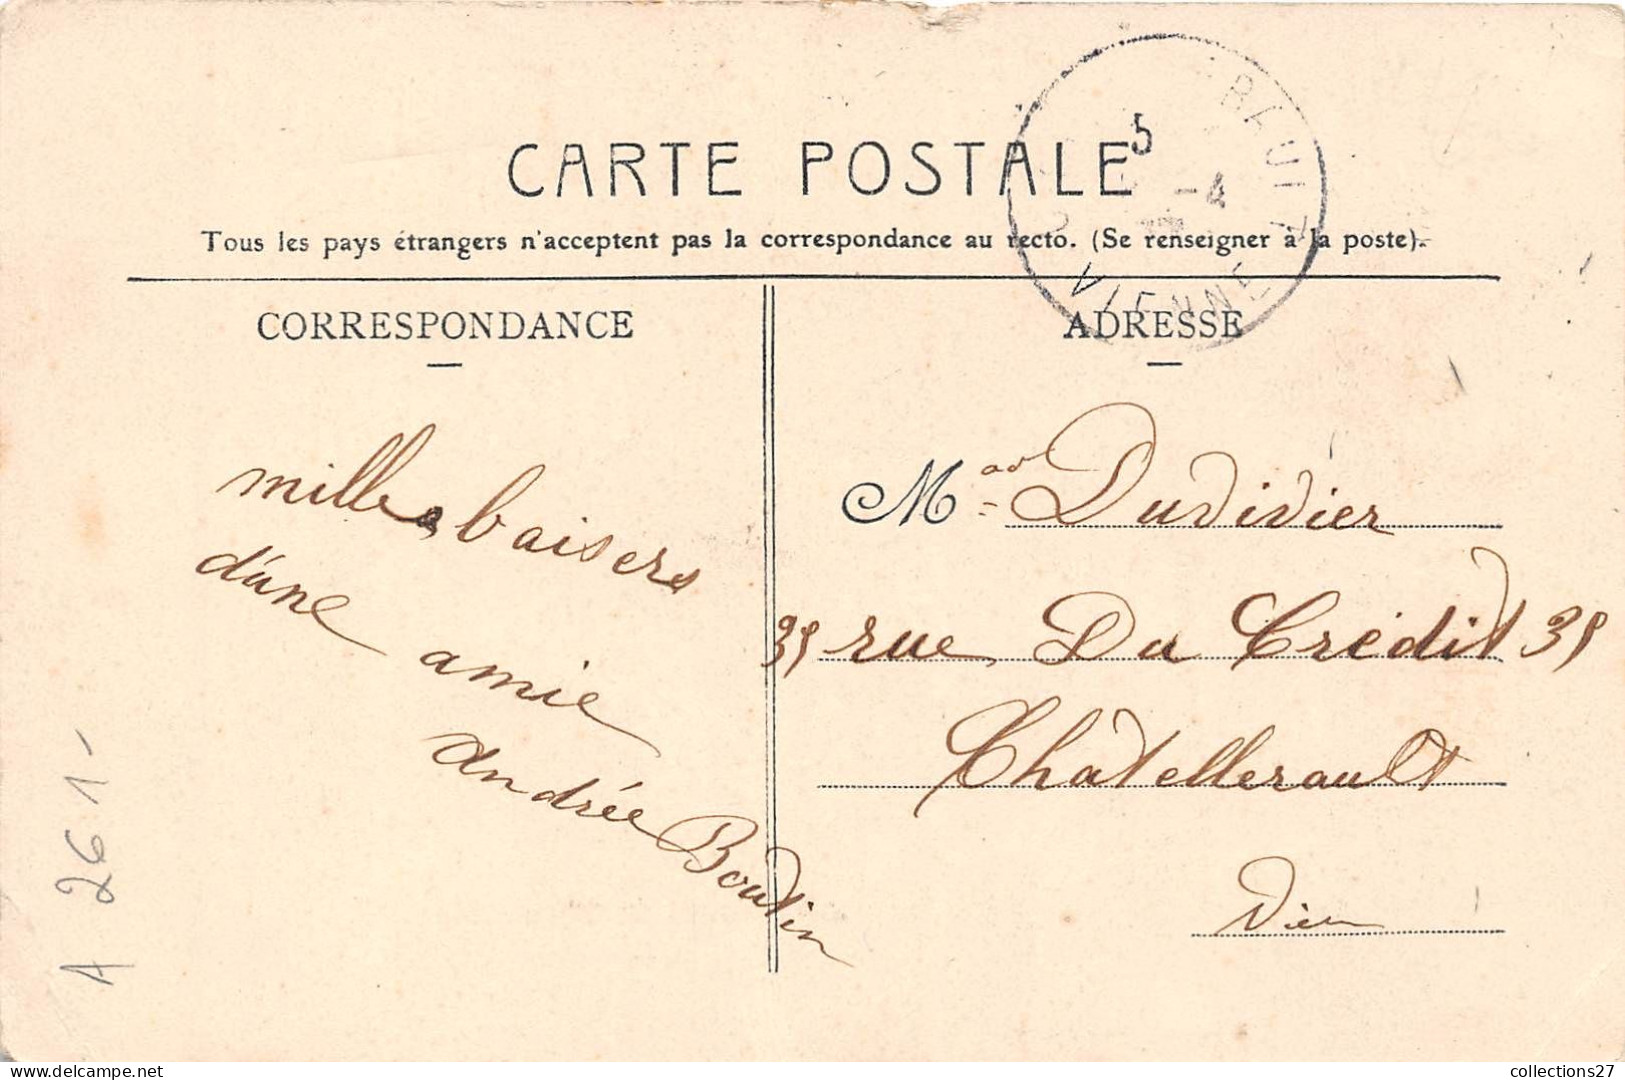 CARTE POSTALE
Tous les pays étrangers n'acceptent pas la correspondance au recto. (Se renseigner à la poste).
5
-4
RAULT
VIENNE
CORRESPONDANCE
mille baisers
d'une amie
Andrée Boutin
ADRESSE
Mad Dudidier
35 rue Du Crédit 35
Chatellerault
Vien
A 261-
collections27